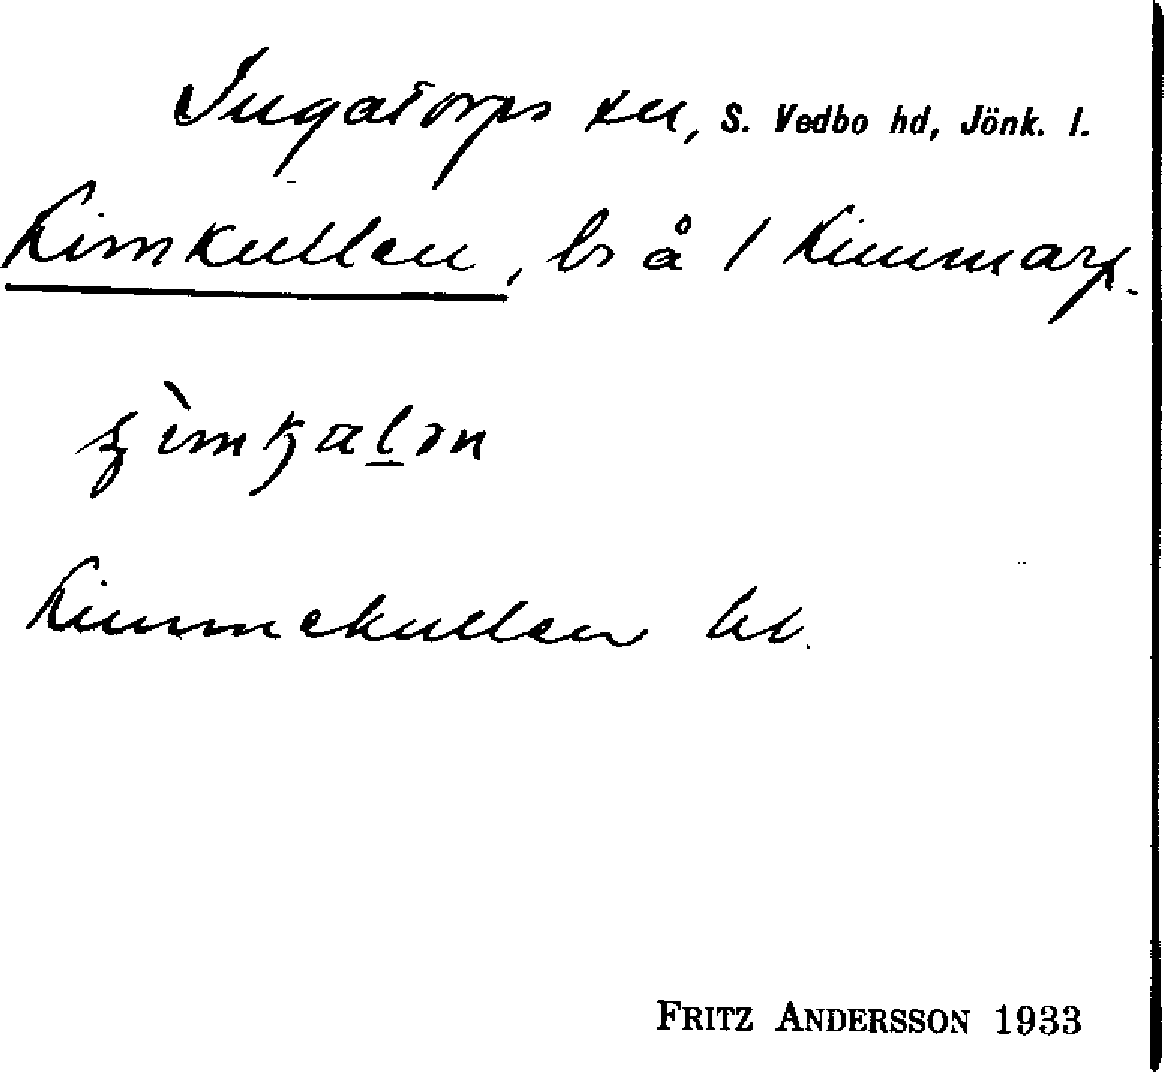 Ingatorps sn, S. Vedbo hd, Jönk. l.
Kimkullen, bs å 1 Kimmarp.
Kimmekullen bl.
FRITZ ANDERSSON 1933